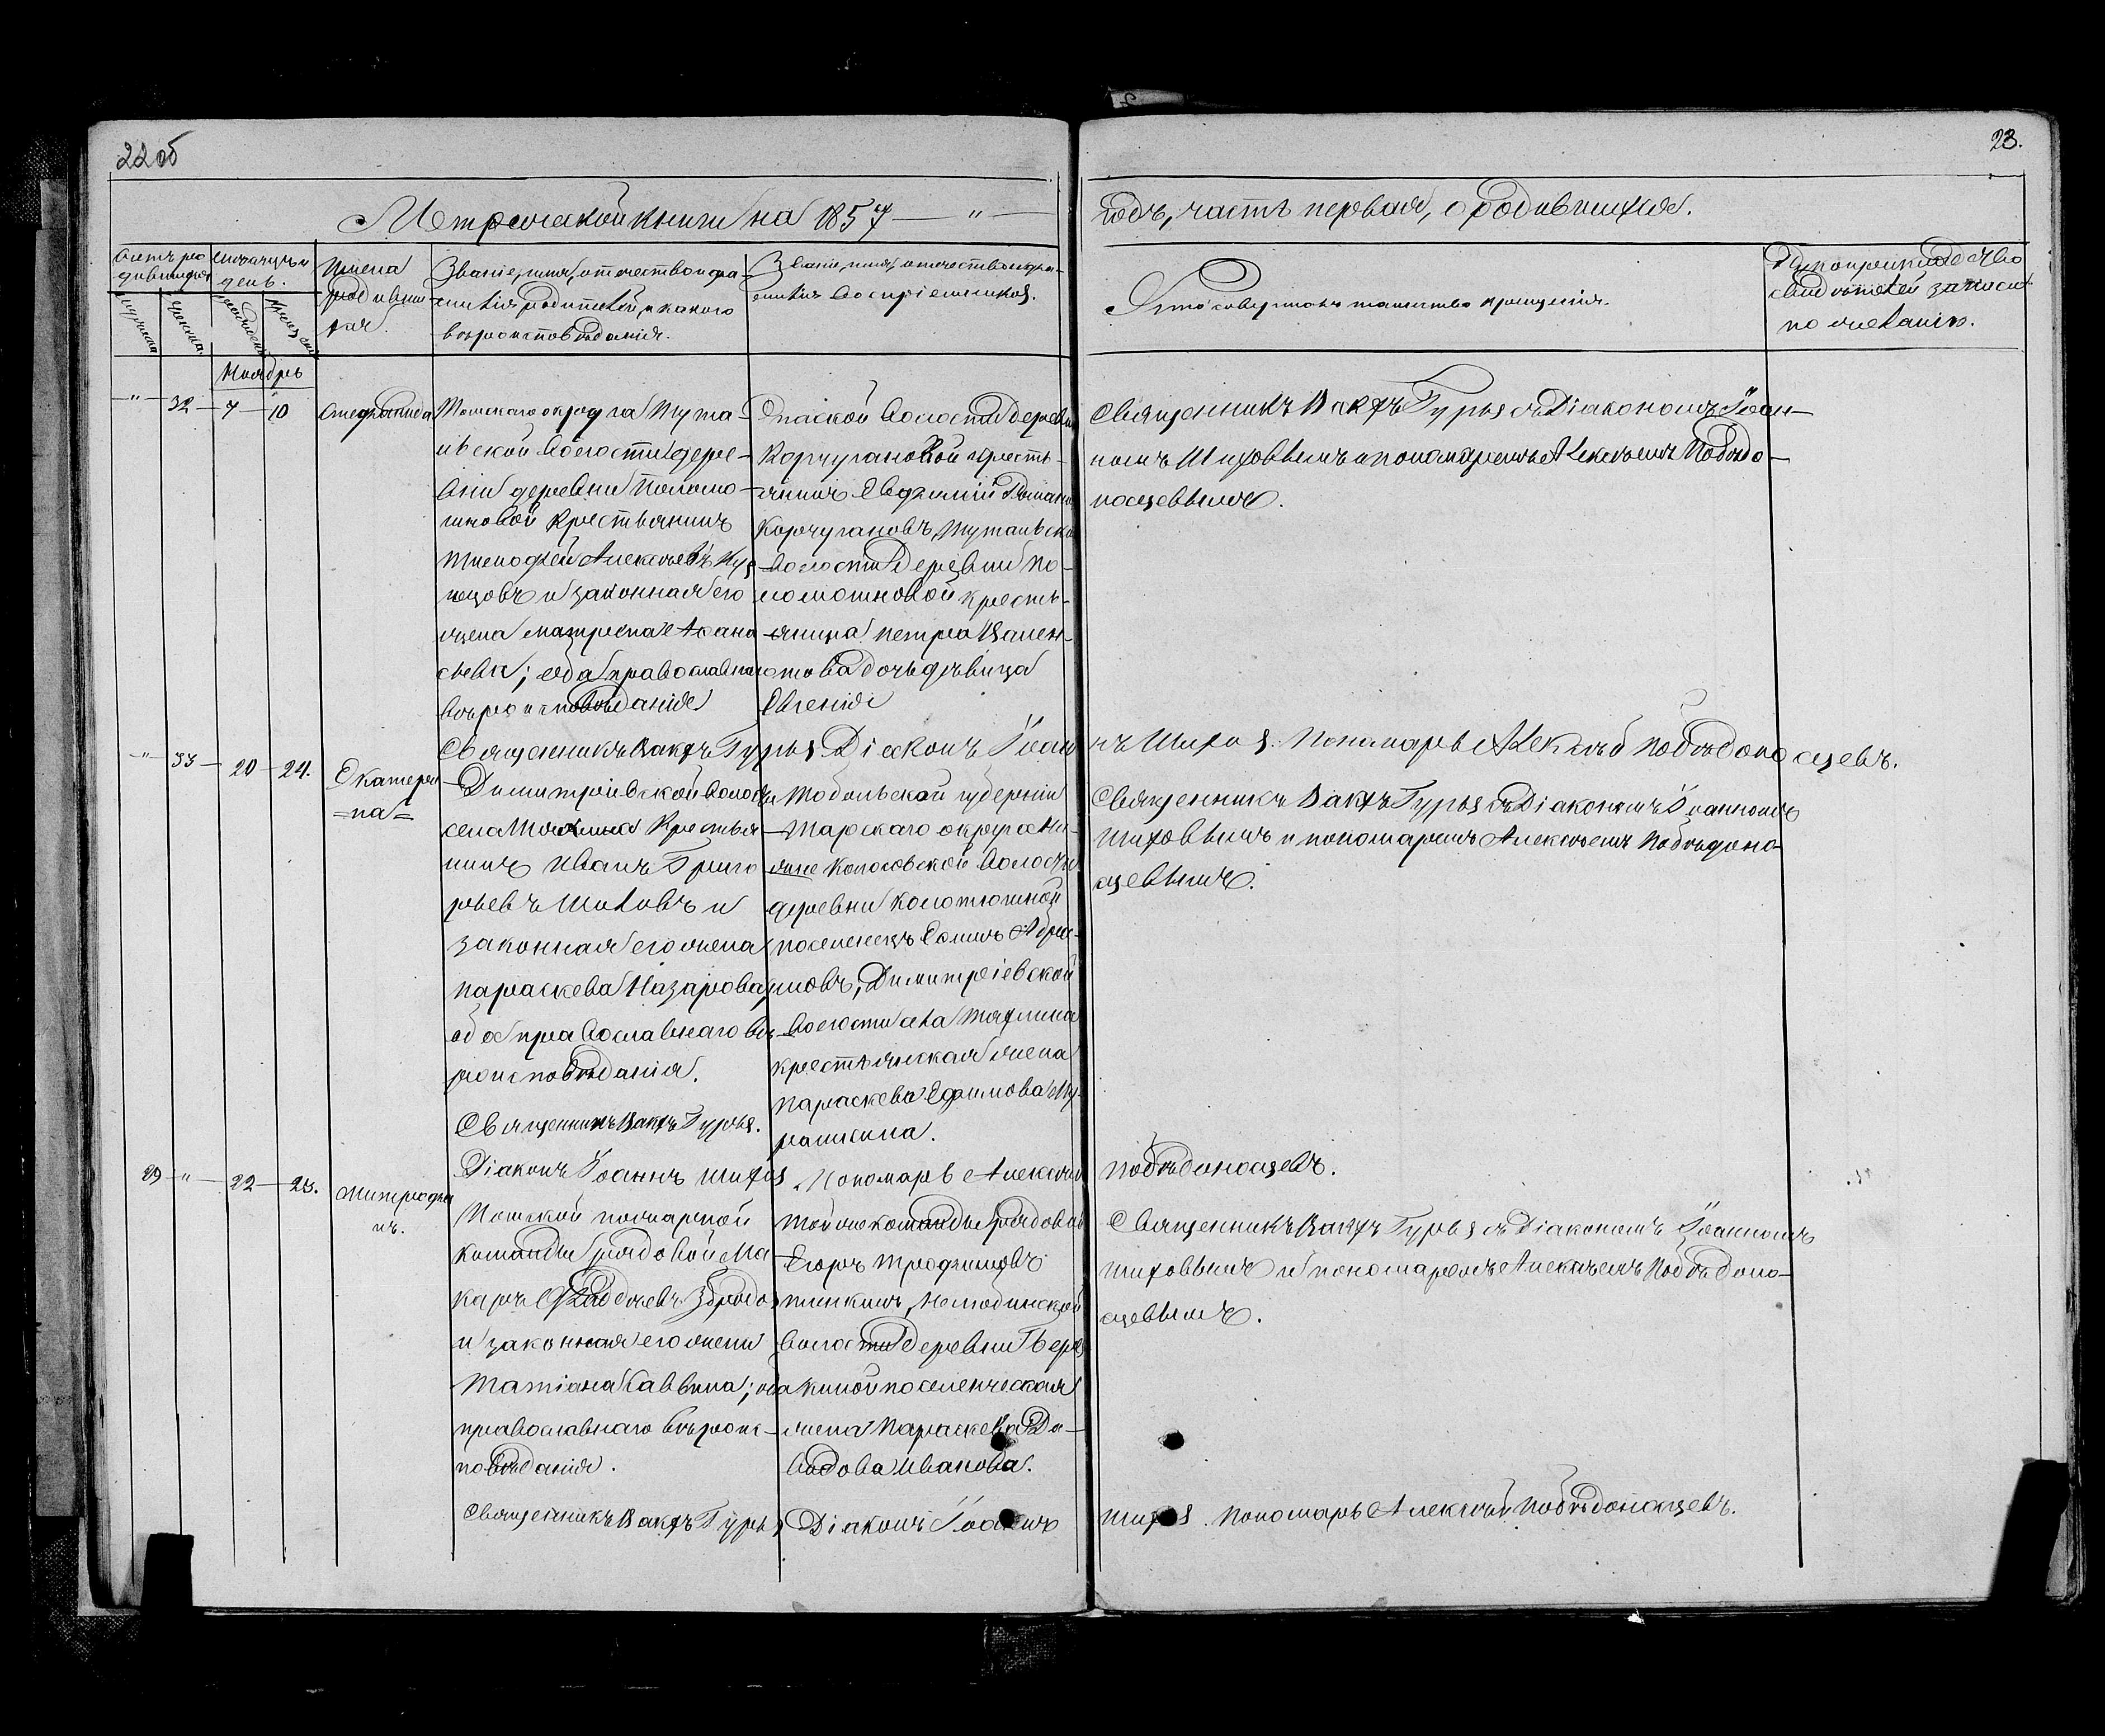 22 об
23.
Метрической книги на 1857
годъ, часть первая, о родившихся.
Счетъ ро-
дившихся
Мѣсяцъ и
день.
Имена
родивших-
ся.
Званіе, имя, отчество и фа-
милія родителей, и какого
вѣроисповѣданія.
Званіе, имя, отчество и фа-
милія воспріемниковъ.
Кто совершалъ таинство крещенія.
Рукоприкладство
свидѣтелей записи
по желанію.
мужеска
женска
рожденія
крещенія
Ноябрь
" 32 7 10
Томскаго округа Тута-
льской волости дере-
вни деревни Поломо-
шновой крестьянинъ
Тимофей Алексѣевъ Куз-
нецовъ и законная его
жена Матрена Афана-
сьева; оба православнаго
вѣроисповѣданія
Спаской волости деревни
Корчугановой кресть-
янинъ Евфимій Романовъ
Корчугановъ, Тутальской
волости деревни По-
ломошновой кресть-
янина Петра Вален-
това дочь дѣвица
Евгенія
Священникъ Вакхъ Гурьевъ съ Діакономъ Іоан-
номъ Шиховымъ и пономаремъ Алексѣемъ Побѣдо-
носцевымъ.
Священникъ Вакхъ Гурьевъ Діаконъ Іоаннъ Шиховъ. Пономарь Алексѣй Побѣдоносцевъ.
" 33 20 24.
Екатери-
=на=
Димитріевской волости
села крестья-
нинъ Иванъ Григо-
рьевъ Шиловъ и
законная его жена
Параскева Назарова,
оба православнаго вѣ-
роисповѣданія.
Тобольской губерніи
Тарскаго округа
Колосовской волости
деревни
поселенецъ Абра-
мовъ, Димитріевской
волости села
крестьянская жена
Параскева Ефимова Му-
рашкина.
Священникъ Вакхъ Гурьевъ съ Діакономъ Іоанномъ
Шиховымъ и пономаремъ Алексѣемъ Побѣдоно-
сцевымъ.
Священникъ Вакхъ Гурьевъ.
Діаконъ Іоаннъ Шиховъ. Пономарь Алексѣй Побѣдоносцевъ.
29 " 22 23.
Митрофа-
нъ.
Томской пожарной
команды рядовой Ма-
каръ Фаддѣевъ
и законная его жена
Татіана Саввина; оба
православнаго вѣроис-
повѣданія.
Той же команды рядовой
Егоръ Трофимовъ
Нелюбинской
волости деревни Бере-
киной поселенческая
жена Параскева Да-
выдова Иванова.
Священникъ Вакхъ Гурьевъ съ Діакономъ Іоанномъ
Шиховымъ и пономаремъ Алексѣемъ Побѣдоно-
сцевымъ.
Священникъ Вакхъ Гурьевъ Діаконъ Іоаннъ Шиховъ. Пономарь Алексѣй Побѣдоносцевъ.